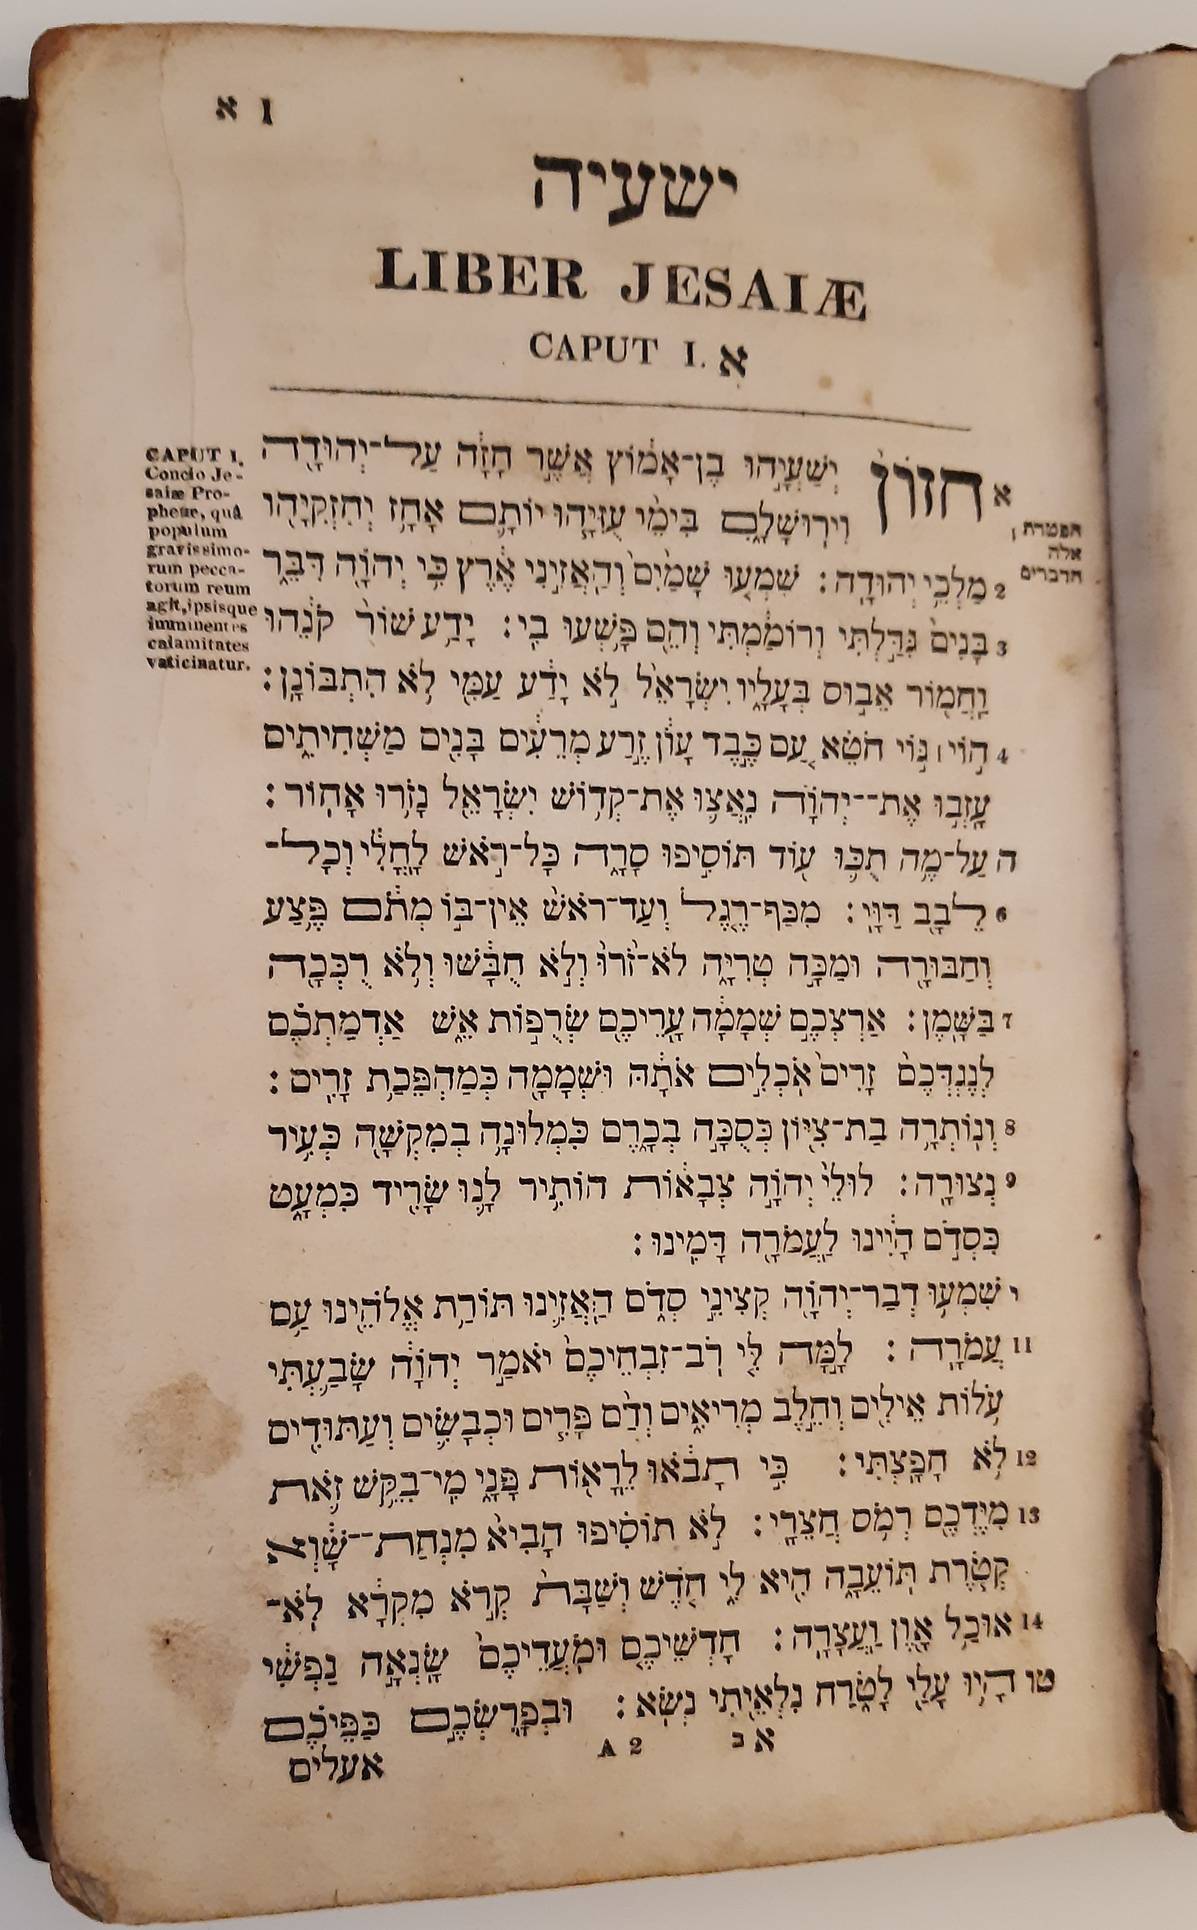 א 1
ישעיה
LIBER JESAIÆ
CAPUT I. א
CAPUT I.
Concio Je-
saiæ Pro-
phetæ, quâ
populum
gravissimo-
rum pecca-
torum reum
agit, ipsisque
imminentes
calamitates
vaticinatur.
הפטרת
אלה
הדברים
א חזון יְשַׁעְיָ֣הוּ בֶן־אָמ֔וֹץ אֲשֶׁ֣ר חָזָ֔ה עַל־יְהוּדָ֖ה
וִירֽוּשָׁלָ֑͏ִם בִּימֵ֨י עֻזִּיָּ֧הוּ יוֹתָ֛ם אָחָ֥ז יְחִזְקִיָּ֖הוּ
2 מַלְכֵ֥י יְהוּדָֽה׃ שִׁמְע֤וּ שָׁמַ֙יִם֙ וְהַאֲזִ֣ינִי אֶ֔רֶץ כִּ֥י יְהוָ֖ה דִּבֵּ֑ר
3 בָּנִים֙ גִּדַּ֣לְתִּי וְרוֹמַ֔מְתִּי וְהֵ֖ם פָּ֥שְׁעוּ בִֽי׃ יָדַ֥ע שׁוֹר֙ קֹנֵ֔הוּ
וַחֲמ֖וֹר אֵב֣וּס בְּעָלָ֑יו יִשְׂרָאֵל֙ לֹ֣א יָדַ֔ע עַמִּ֖י לֹ֥א הִתְבּוֹנָֽן׃
4 ה֣וֹי ׀ גּ֣וֹי חֹטֵ֗א עַ֚ם כֶּ֣בֶד עָוֺ֔ן זֶ֣רַע מְרֵעִ֔ים בָּנִ֖ים מַשְׁחִיתִ֑ים
עָזְב֣וּ אֶת־־יְהוָ֗ה נִֽאֲצ֛וּ אֶת־קְד֥וֹשׁ יִשְׂרָאֵ֖ל נָזֹ֥רוּ אָחֽוֹר׃
ה עַל־מֶ֥ה תֻכּ֛וּ ע֖וֹד תּוֹסִ֣יפוּ סָרָ֑ה כָּל־רֹ֣אשׁ לָחֳלִ֔י וְכָל־
6 לֵבָ֖ב דַּוָּֽי׃ מִכַּף־רֶ֤גֶל וְעַד־רֹאשׁ֙ אֵֽין־בּ֣וֹ מְתֹ֔ם פֶּ֥צַע
וְחַבּוּרָ֖ה וּמַכָּ֣ה טְרִיָּ֑ה לֹא־זֹ֙רוּ֙ וְלֹ֣א חֻבָּ֔שׁוּ וְלֹ֥א רֻכְּכָ֖ה
7 בַּשָּֽׁמֶן׃ אַרְצְכֶ֣ם שְׁמָמָ֔ה עָרֵיכֶ֖ם שְׂרֻפ֣וֹת אֵ֑שׁ אַדְמַתְכֶ֗ם
לְנֶגְדְּכֶם֙ זָרִים֙ אֹכְלִ֣ים אֹתָ֔הּ וּשְׁמָמָ֖ה כְּמַהְפֵּכַ֥ת זָרִֽים׃
8 וְנוֹתְרָ֥ה בַת־צִיּ֖וֹן כְּסֻכָּ֣ה בְכָ֑רֶם כִּמְלוּנָ֥ה בְמִקְשָׁ֖ה כְּעִ֥יר
9 נְצוּרָֽה׃ לוּלֵי֙ יְהוָ֣ה צְבָא֔וֹת הוֹתִ֥יר לָ֛נוּ שָׂרִ֖יד כִּמְעָ֑ט
כִּסְדֹ֣ם הָיִ֔ינוּ לַעֲמֹרָ֖ה דָּמִֽינוּ׃
י שִׁמְע֥וּ דְבַר־יְהוָ֖ה קְצִינֵ֣י סְדֹ֑ם הַאֲזִ֛ינוּ תּוֹרַ֥ת אֱלֹהֵ֖ינוּ עַ֥ם
11 עֲמֹרָֽה׃ לָ֣מָּה לִּ֤י רֹב־זִבְחֵיכֶם֙ יֹאמַ֣ר יְהוָ֔ה שָׂבַ֛עְתִּי
עֹל֥וֹת אֵילִ֖ים וְחֵ֣לֶב מְרִיאִ֑ים וְדַ֨ם פָּרִ֧ים וּכְבָשִׂ֛ים וְעַתּוּדִ֖ים
12 לֹ֥א חָפָֽצְתִּי׃ כִּ֣י תָבֹ֔אוּ לֵרָא֖וֹת פָּנָ֑י מִי־בִקֵּ֥שׁ זֹ֛את
13 מִיֶּדְכֶ֖ם רְמֹ֥ס חֲצֵרָֽי׃ לֹ֣א תוֹסִ֗יפוּ הָבִיא֙ מִנְחַת־־שָׁ֔וְא
קְטֹ֧רֶת תּוֹעֵבָ֛ה הִ֖יא לִ֑י חֹ֤דֶשׁ וְשַׁבָּת֙ קְרֹ֣א מִקְרָ֔א לֹֽא־
14 אוּכַ֥ל אָ֖וֶן וַעֲצָרָֽה׃ חָדְשֵׁיכֶ֤ם וּמוֹעֲדֵיכֶם֙ שָׂנְאָ֣ה נַפְשִׁ֔י
טו הָי֥וּ עָלַ֖י לָטֹ֑רַח נִלְאֵ֖יתִי נְשֹֽׂא׃ וּבְפָרִשְׂכֶ֣ם כַּפֵּיכֶ֗ם
אעלים
A 2
א ב